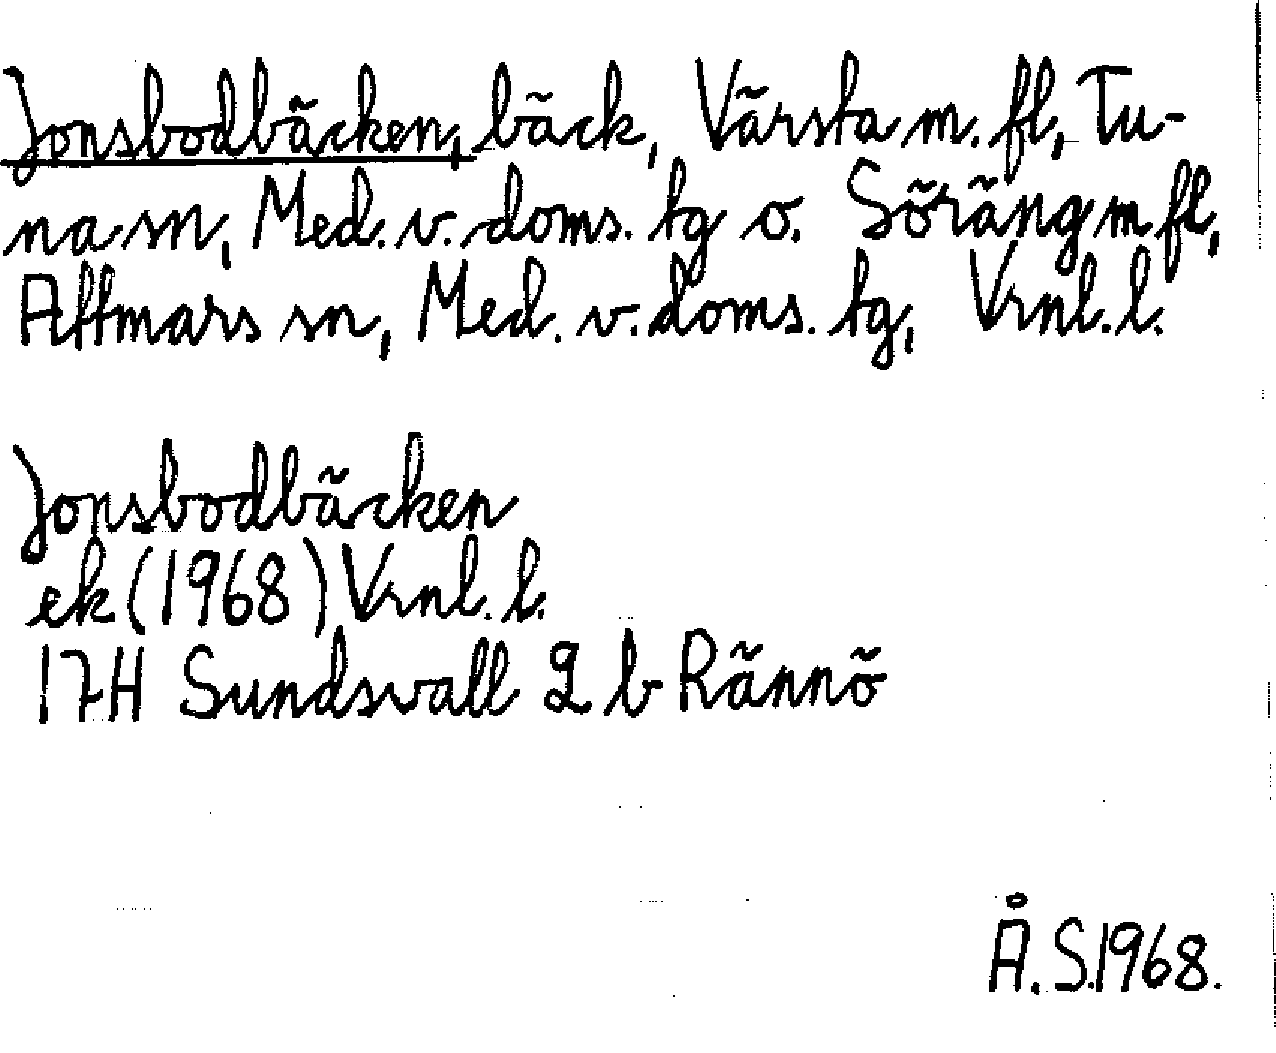 Jonsbodbäcken, bäck, Värsta m. fl, Tu-
na sn, Med. v. doms. tg o. Söräng m fl,
Attmars sn, Med. v. doms. tg, Vrnl. l.
Jonsbodbäcken
ek (1968) Vrnl. l.
17H Sundsvall 2 b Rännö
Å. S. 1968.